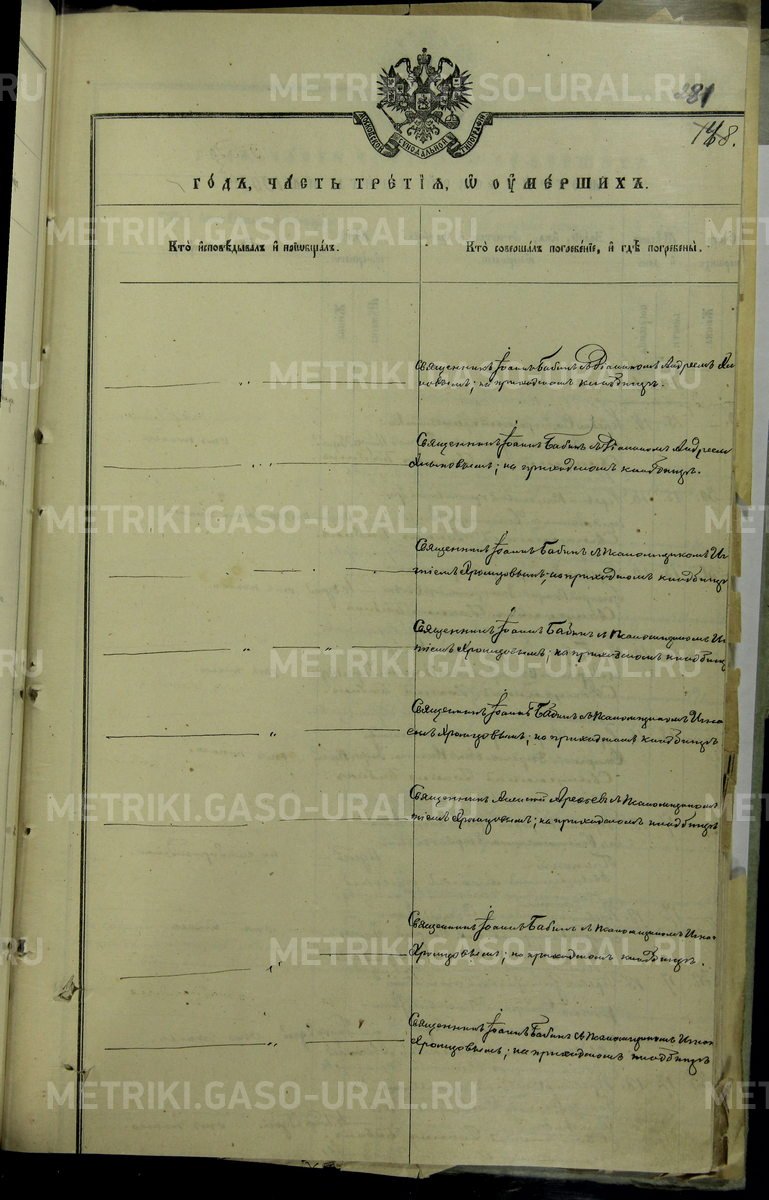 281
748.
МОСКОВСКОЙ СѴНОДАЛЬНОЙ ТИПОГРАФІИ
ГОДЪ, ЧАСТЬ ТРЕТІЯ, Ѡ ОУМЕРШИХЪ.
Кто исповѣдывалъ и пріобщалъ.
Кто совершалъ погребеніе, и гдѣ погребены.
Священникъ Іоаннъ Бабинъ съ Діакономъ Андреемъ
новымъ; на приходскомъ кладбищѣ.
Священникъ Іоаннъ Бабинъ съ Діакономъ Андреемъ
на приходскомъ кладбищѣ.
Священникъ Іоаннъ Бабинъ съ Псаломщикомъ Иг
натіемъ Хромцовымъ; на приходскомъ кладбищѣ
Священникъ Іоаннъ Бабинъ съ Псаломщикомъ Иг
натіемъ Хромцовымъ; на приходскомъ кладбищѣ
Священникъ Іоаннъ Бабинъ съ Псаломщикомъ Игна
емъ Хромцовымъ; на приходскомъ кладбищѣ
Священникъ Алексій Арефьевъ съ Псаломщикомъ
тіемъ Хромцовымъ; на приходскомъ кладбищѣ
Священникъ Іоаннъ Бабинъ съ Псаломщикомъ Игна
Хромцовымъ; на приходскомъ кладбищѣ.
Священникъ Іоаннъ Бабинъ съ Псаломщикомъ Игна
Хромцовымъ; на приходскомъ кладбищѣ
METRIKI.GASO-URAL.RU